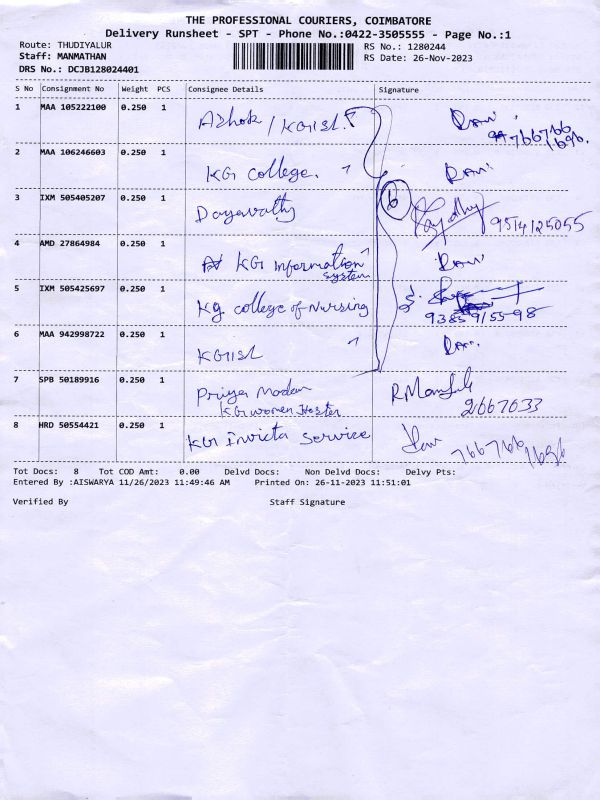 THE PROFESSIONAL COURIERS, COIMBATORE
Delivery Runsheet - SPT - Phone No.:0422-3505555 - Page No.:1
Route: THUDIYALUR RS No.: 1280244
Staff: MANMATHAN RS Date: 26-Nov-2023
DRS No.: DCJB128024401
S No Consignment No Weight PCS Consignee Details Signature
1 MAA 105222100 0.250 1 Ashok / KGISL. Ravi
766766
1696.
2 MAA 106246603 0.250 1 KG college. Ravi
3 IXM 505405207 0.250 1 Dayavathy 6 9514125055
4 AMD 27864984 0.250 1 KG Information Ravi
system
5 IXM 505425697 0.250 1 KG college of Nursing
9385 9155 98
6 MAA 942998722 0.250 1 KGISL Ravi
7 SPB 50189916 0.250 1 Priya Madam
KG women Hostel 2667033
8 HRD 50554421 0.250 1 KG Invicta Service Ravi 766766
1696
Tot Docs: 8 Tot COD Amt: 0.00 Delvd Docs: Non Delvd Docs: Delvy Pts:
Entered By :AISWARYA 11/26/2023 11:49:46 AM Printed On: 26-11-2023 11:51:01
Verified By Staff Signature